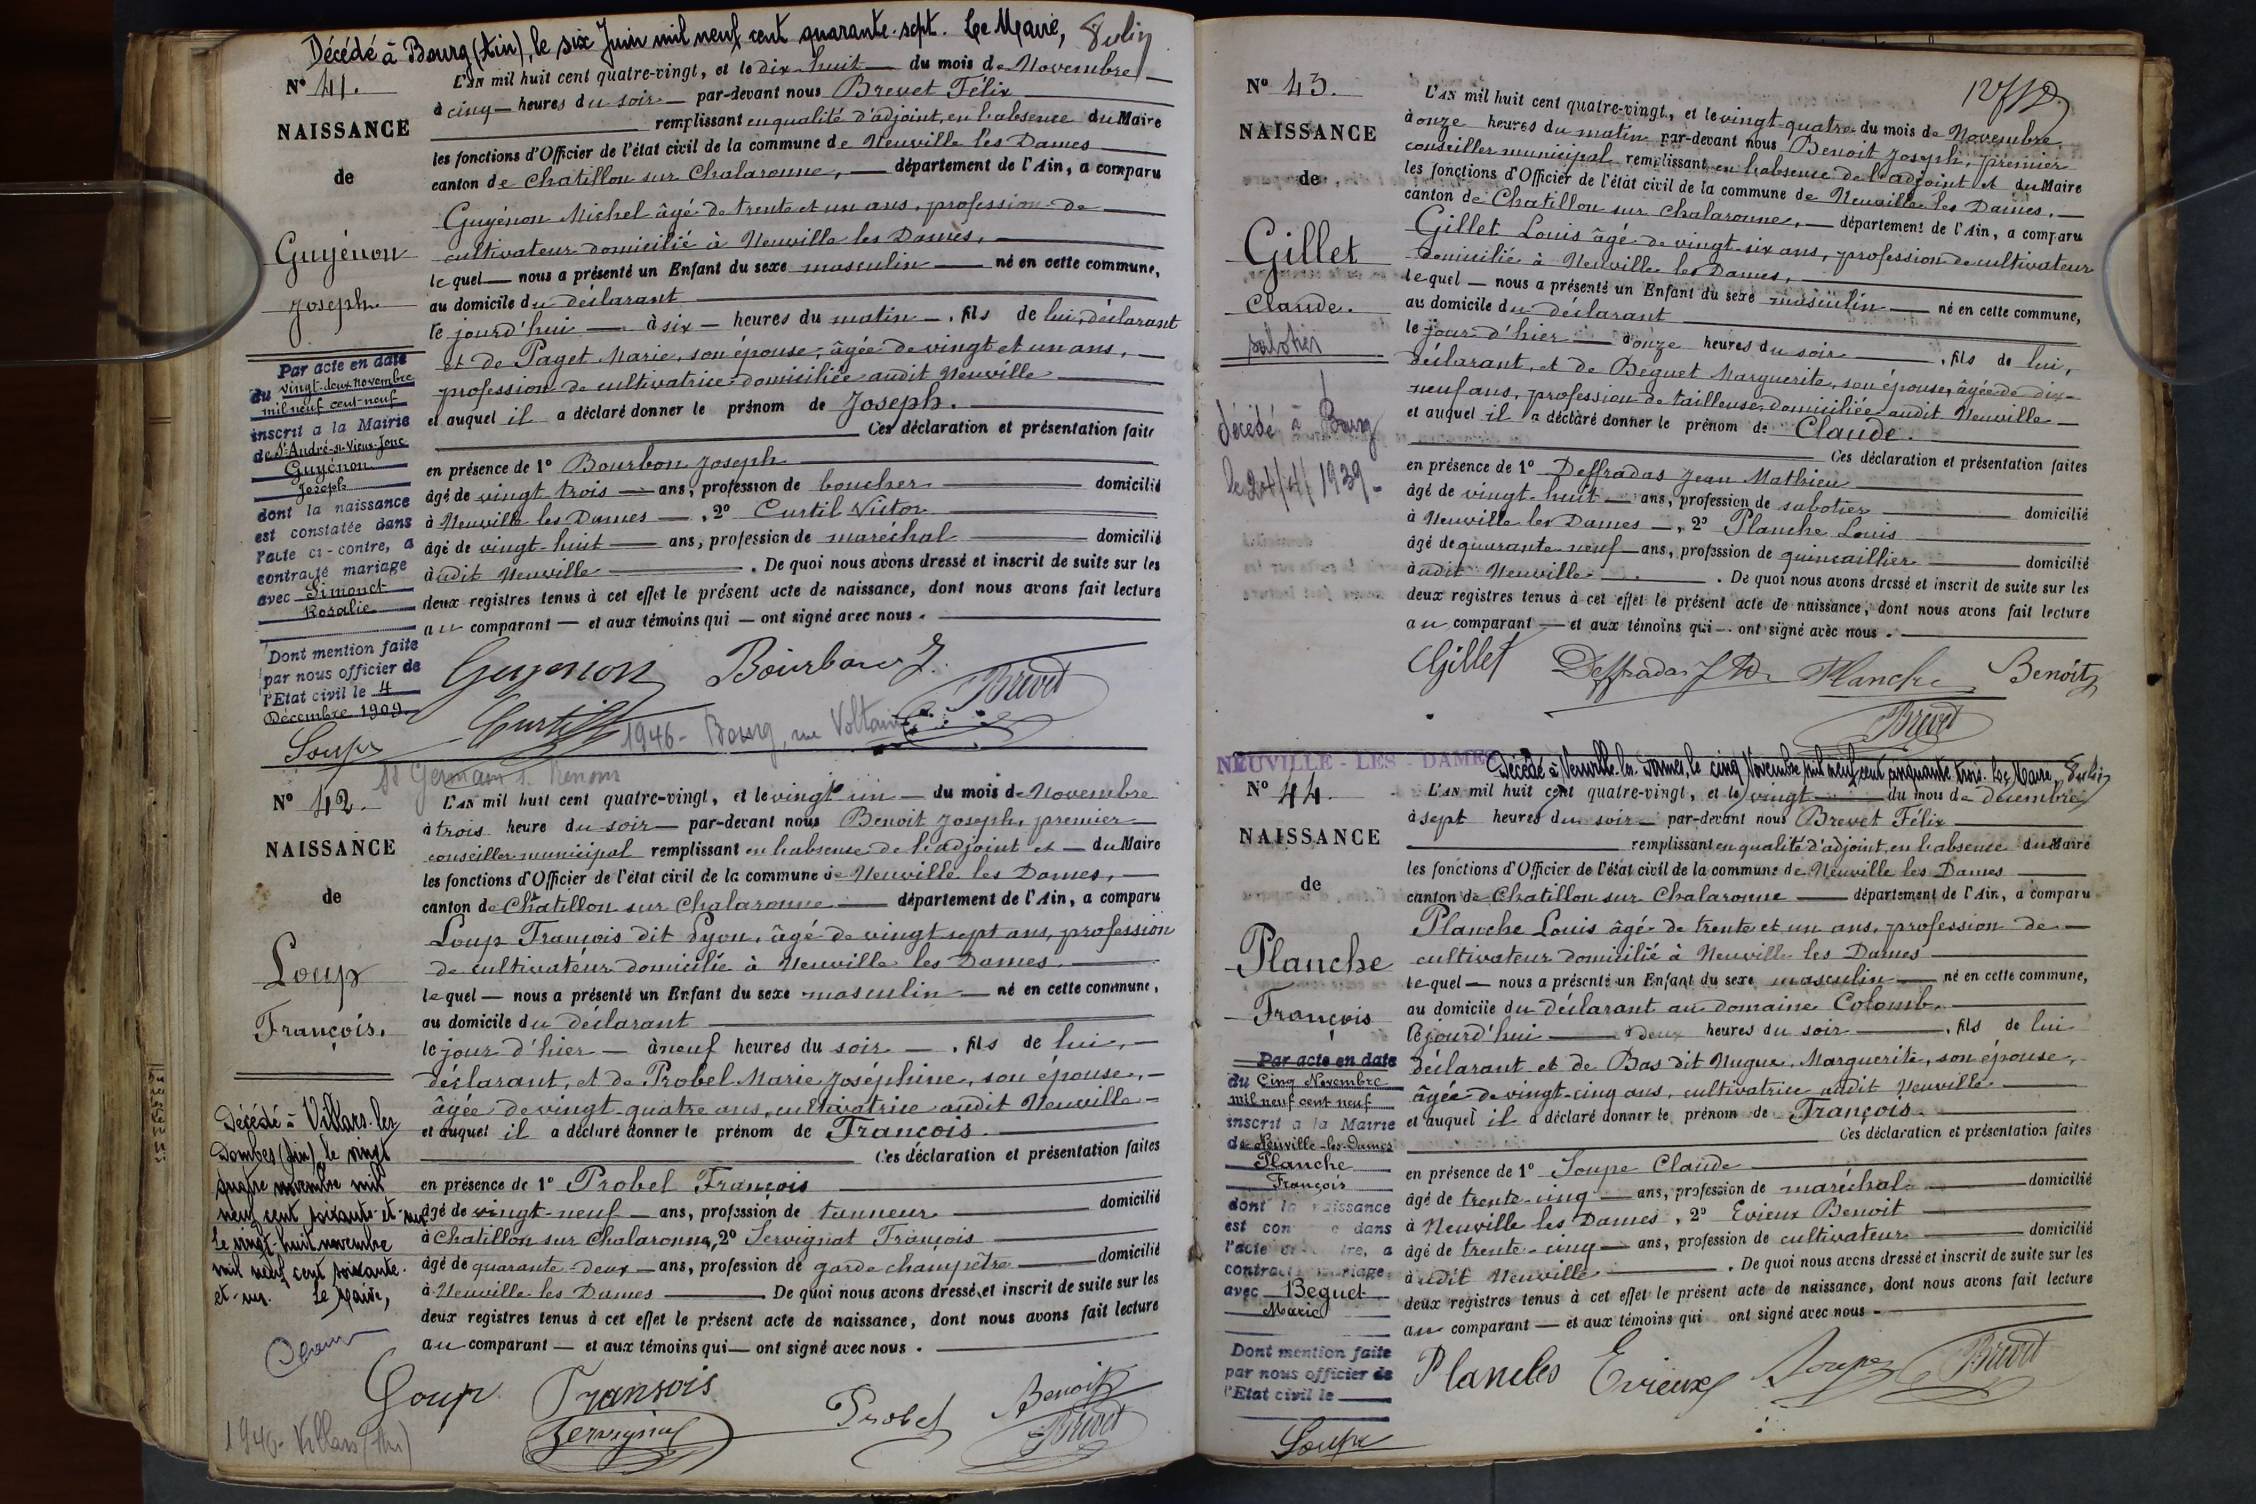 Décédé à Bourg (Ain), le six Juin mil neuf cent quarante-sept. Le Maire,
N° 41.
NAISSANCE
de
Guyénon
Joseph
Par acte en date
du vingt-deux novembre
mil neuf cent neuf
inscrit a la Mairie
de St André-s-Vieux-Jonc
Guyénon
Joseph
dont la naissance
est constatée dans
l'acte ci-contre, a
contracté mariage
avec Simonet
Rosalie
Dont mention faite
par nous officier de
l'Etat civil le 4
Décembre 1909.
Soupe
L'AN mil huit cent quatre-vingt, et le dix-huit du mois de Novembre
à cinq heures du soir par-devant nous Brevet Félix
remplissant en qualité d'adjoint, en l'absence du Maire
les fonctions d'Officier de l'état civil de la commune de Neuville les Dames
canton de Chatillon sur Chalaronne, département de l'Ain, a comparu
Guyénon Michel âgé de trente et un ans, profession de
cultivateur domicilié à Neuville les Dames,
lequel nous a présenté un Enfant du sexe masculin né en cette commune,
au domicile du déclarant
le jourd'hui à six heures du matin, fils de lui, déclarant
et de Paget Marie, son épouse, âgée de vingt et un ans,
profession de cultivatrice domiciliée audit Neuville
et auquel il a déclaré donner le prénom de Joseph.
Ces déclaration et présentation faites
en présence de 1° Bourbon Joseph
âgé de vingt trois ans, profession de boucher domicilié
à Neuville les Dames, 2° Curtil Victor
âgé de vingt-huit ans, profession de maréchal domicilié
audit Neuville. De quoi nous avons dressé et inscrit de suite sur les
deux registres tenus à cet effet le présent acte de naissance, dont nous avons fait lecture
au comparant et aux témoins qui ont signé avec nous.
Guyenon Bourbon J. Brevet
Curtil
1946 - Bourg, rue Voltaire
St Germain s. Renom
N° 42.
NAISSANCE
de
Loup
François.
Décédé à Villars-les
Dombes (Ain) le vingt
quatre novembre mil
neuf cent soixante-et-un
Le vingt-huit novembre
mil neuf cent soixante-
et-un. Le Maire,
1946 - Villars (Ain)
L'AN mil huit cent quatre-vingt, et le vingt un du mois de Novembre
à trois heure du soir par-devant nous Benoit Joseph, premier
conseiller municipal remplissant en l'absence de l'adjoint et du Maire
les fonctions d'Officier de l'état civil de la commune de Neuville les Dames,
canton de Chatillon sur Chalaronne département de l'Ain, a comparu
Loup François dit Lyon, âgé de vingt sept ans, profession
de cultivateur domicilié à Neuville les Dames
lequel nous a présenté un Enfant du sexe masculin né en cette commune,
au domicile du déclarant
le jour d'hier à neuf heures du soir, fils de lui,
déclarant, et de Probel Marie Joséphine, son épouse,
âgée de vingt-quatre ans, cultivatrice audit Neuville
et auquel il a déclaré donner le prénom de François
Ces déclaration et présentation faites
en présence de 1° Probel François
âgé de vingt-neuf ans, profession de tanneur domicilié
à Chatillon sur Chalaronne, 2° Servignat François
âgé de quarante-deux ans, profession de garde champêtre domicilié
à Neuville les Dames De quoi nous avons dressé et inscrit de suite sur les
deux registres tenus à cet effet le présent acte de naissance, dont nous avons fait lecture
au comparant et aux témoins qui ont signé avec nous.
Loup Fransois Probel Benoit
Servignat Brevet
N° 43.
NAISSANCE
de
Gillet
Claude.
sabotier
décédé à Bourg
le 24/4/1939
L'AN mil huit cent quatre-vingt, et le vingt-quatre du mois de Novembre
à onze heures du matin par-devant nous Benoit Joseph, premier
conseiller municipal remplissant en l'absence de l'adjoint et du Maire
les fonctions d'Officier de l'état civil de la commune de Neuville les Dames.
canton de Chatillon sur Chalaronne, département de l'Ain, a comparu
Gillet Louis âgé de vingt-six ans, profession de cultivateur
domicilié à Neuville les Dames,
lequel nous a présenté un Enfant du sexe masculin né en cette commune,
au domicile du déclarant
le jour d'hier à onze heures du soir, fils de lui,
déclarant, et de Beguet Marguerite, son épouse, âgée de dix-
neuf ans, profession de tailleuse, domiciliée audit Neuville
et auquel il a déclaré donner le prénom de Claude.
Ces déclaration et présentation faites
en présence de 1° Deffradas Jean Mathieu
âgé de vingt-huit ans, profession de sabotier domicilié
à Neuville les Dames, 2° Planche Louis
âgé de quarante neuf ans, profession de quincaillier domicilié
audit Neuville. De quoi nous avons dressé et inscrit de suite sur les
deux registres tenus à cet effet le présent acte de naissance, dont nous avons fait lecture
au comparant et aux témoins qui ont signé avec nous.
Gillet Deffradas J M Planche Benoit
Brevet
NEUVILLE-LES-DAMES
Décédé à Neuville-les-Dames, le cinq Novembre mil neuf cent cinquante trois. Le Maire,
N° 44.
NAISSANCE
de
Planche
François
Par acte en date
du Cinq Novembre
mil neuf cent neuf
inscrit a la Mairie
de Neuville-les-Dames
Planche
François
dont la naissance
est con e dans
l'acte tre, a
contrac riage
avec Beguet
Marie
Dont mention faite
par nous officier de
l'Etat civil le
Soupe
L'AN mil huit cent quatre-vingt, et le vingt du mois de décembre
à sept heures du soir par-devant nous Brevet Félix
remplissant en qualité d'adjoint, en l'absence du Maire
les fonctions d'Officier de l'état civil de la commune de Neuville les Dames
canton de Chatillon sur Chalaronne département de l'Ain, a comparu
Planche Louis âgé de trente et un ans, profession de
cultivateur domicilié à Neuville les Dames
lequel nous a présenté un Enfant du sexe masculin né en cette commune,
au domicile du déclarant au domaine Colomb.
le jourd'hui à deux heures du soir, fils de lui
déclarant et de Bas dit Nugue, Marguerite, son épouse,
âgée de vingt-cinq ans, cultivatrice audit Neuville
et auquel il a déclaré donner le prénom de François.
Ces déclaration et présentation faites
en présence de 1° Soupe Claude
âgé de trente-cinq ans, profession de maréchal domicilié
à Neuville les Dames, 2° Evieux Benoit
âgé de trente-cinq ans, profession de cultivateur domicilié
audit Neuville. De quoi nous avons dressé et inscrit de suite sur les
deux registres tenus à cet effet le présent acte de naissance, dont nous avons fait lecture
au comparant et aux témoins qui ont signé avec nous
Planches Evieux Soupe Brevet